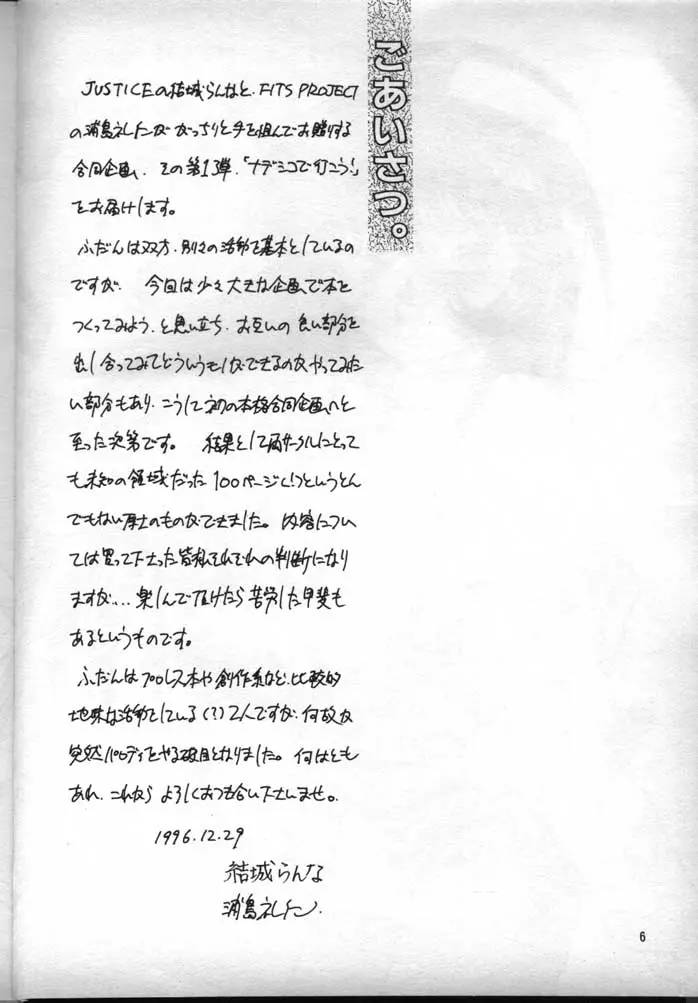 ごあいさつ。
JUSTICEの結城らんなと、FITS PROJECT
の浦島礼仁が がっちりと手を組んでお贈りする
合同企画、その第1弾、「ナデシコで行こう!」
をお届けします。
ふだんは双方、別々の活動を基本としているの
ですが、今回は少々大きな企画で本を
つくってみよう、と思い立ち、お互いの良い部分を
出し合ってみてどういうものができるのかやってみた
い部分もあり、こうして初の本格合同企画へと
至った次第です。 結果として両サークルにとって
も未知の領域だった100ページ(!)というとん
でもない厚さのものができました。内容につい
ては買って下さった皆様それぞれの判断になり
ますが...楽しんで頂けたら苦労した甲斐も
あるというものです。
ふだんはプロレス本や創作系など、比較的
地味な活動をしている(?)2人ですが、何故か
突然パロディをやる破目となりました。何はとも
あれ、これから よろしくおつき合い下さいませ。
1996.12.29
結城らんな
浦島
6